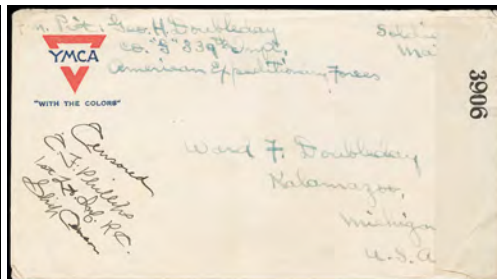 Pvt. Geo. H. Doubleday
Co. "G" 339th Inf.,
American Expeditionary Forces
Soldier
Mai
YMCA
"WITH THE COLORS"
3906
Censored
C. F. Phillips
1st Lt. Inf. R.C.
Ward F. Doubleday
Kalamazoo,
Michigan
U.S.A